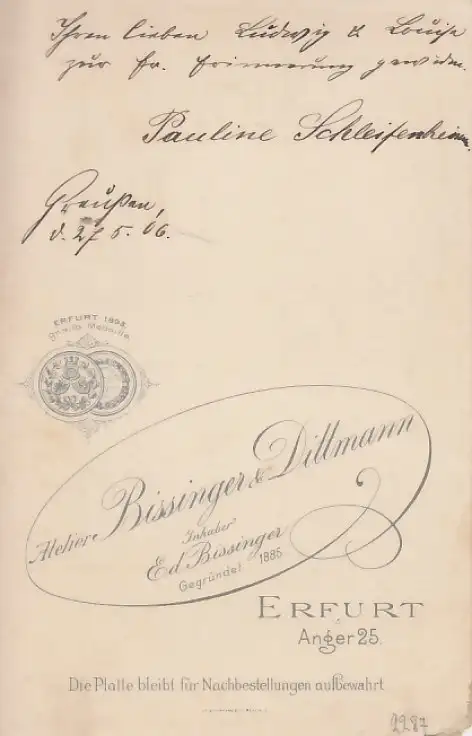 Ihren lieben Ludwig & Louise
zur fr. Erinnerung gewidm.
Pauline Schleifenheimer
Greußen,
d. 27. 5. 06.
ERFURT 1893
Medaille
Atelier Bissinger & Dittmann
Inhaber
Ed Bissinger
Gegründet 1886
ERFURT
Anger 25.
Die Platte bleibt für Nachbestellungen aufbewahrt
2287